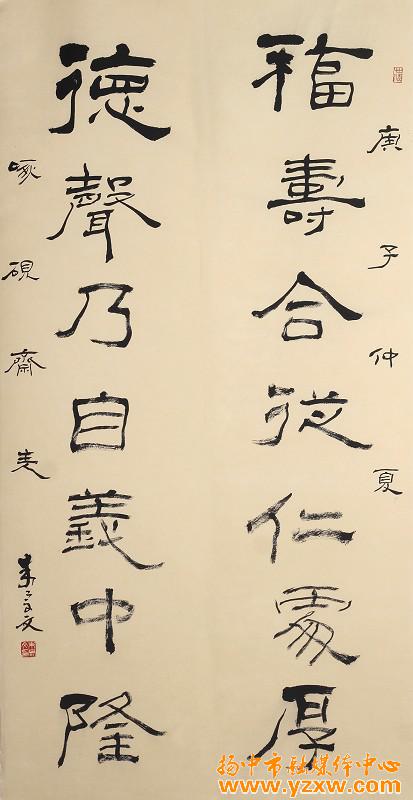 庚子仲夏
福壽合從仁處厚
德聲乃自義中隆
啄硯齋
扬中市融媒体中心
www.yzxw.com